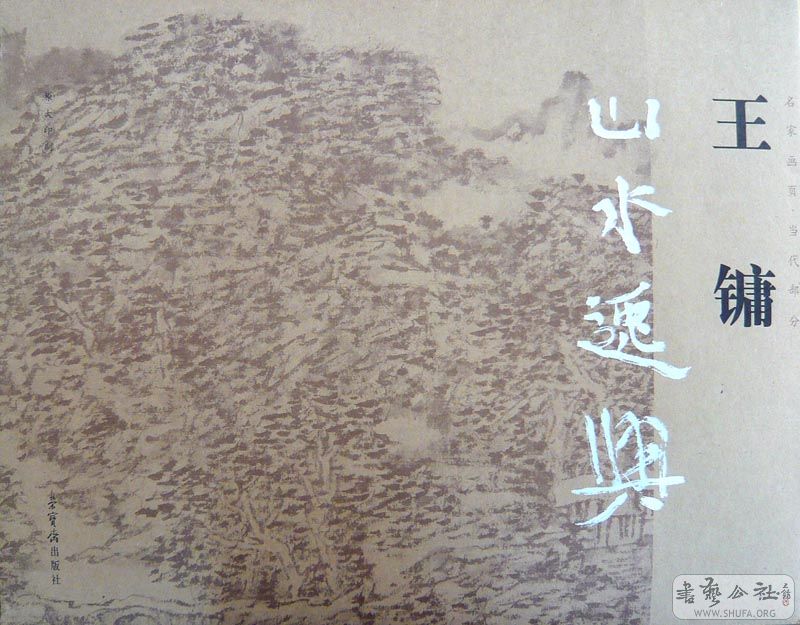 名家画页·当代部分
王镛
山水遞興
原大印制
荣宝斋出版社
書藝公社
WWW.SHUFA.ORG